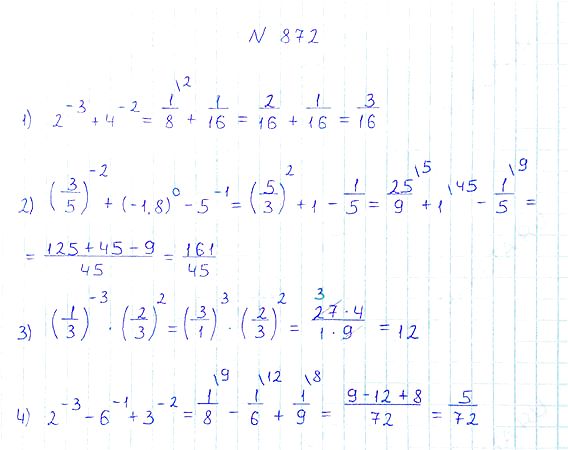 N 872
1) 2^{-3} + 4^{-2} = \frac{1}{8}^{\2} + \frac{1}{16} = \frac{2}{16} + \frac{1}{16} = \frac{3}{16}
2) (\frac{3}{5})^{-2} + (-1,8)^{0} - 5^{-1} = (\frac{5}{3})^{2} + 1 - \frac{1}{5} = \frac{25}{9}^{\5} + 1^{\45} - \frac{1}{5}^{\9} =
= \frac{125 + 45 - 9}{45} = \frac{161}{45}
3) (\frac{1}{3})^{-3} · (\frac{2}{3})^{2} = (\frac{3}{1})^{3} · (\frac{2}{3})^{2} = \frac{\overset{3}{27} · 4}{1 · 9} = 12
4) 2^{-3} - 6^{-1} + 3^{-2} = \frac{1}{8}^{\9} - \frac{1}{6}^{\12} + \frac{1}{9}^{\8} = \frac{9 - 12 + 8}{72} = \frac{5}{72}